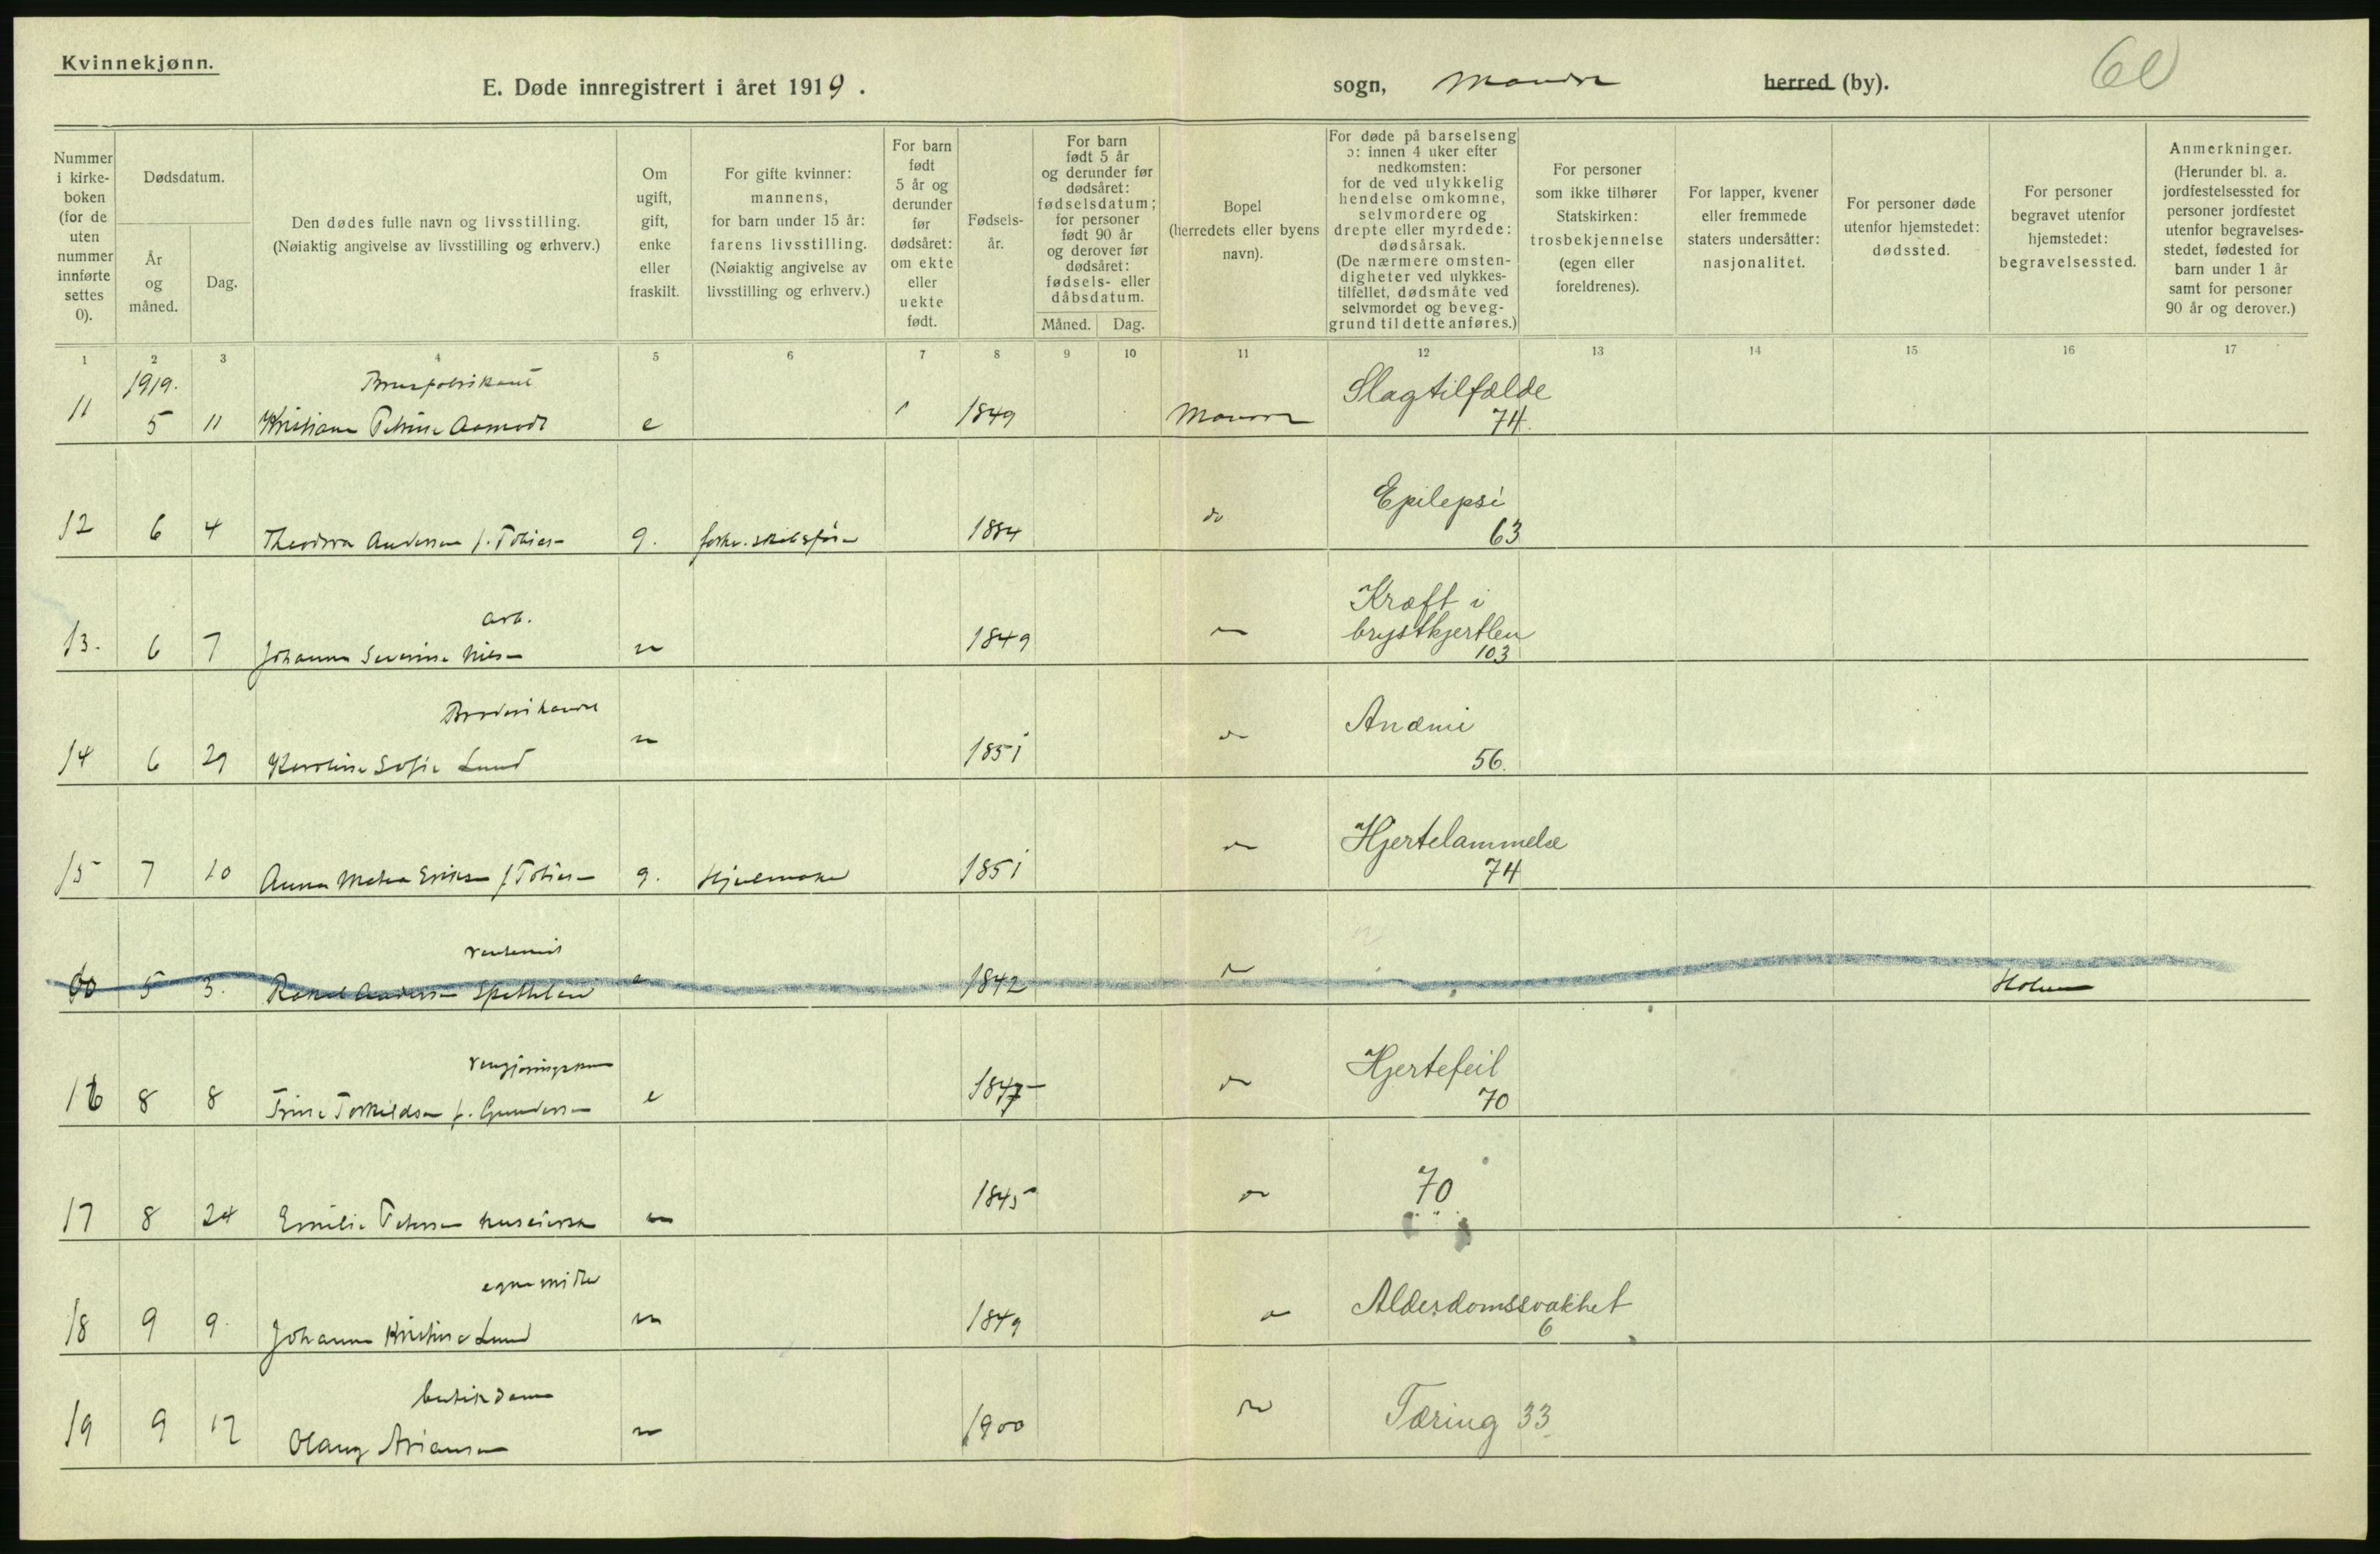 Kvinnekjønn.
E. Døde innregistrert i året 1919.
sogn,
herred (by).
60
Nummer i kirke-boken (for de uten nummer innførte settes 0).
Dødsdatum.
År og måned.
Dag.
Den dødes fulle navn og livsstilling.
(Nøiaktig angivelse av livsstilling og erhverv.)
Om ugift, gift, enke eller fraskilt.
For gifte kvinner: mannens, for barn under 15 år: farens livsstilling.
(Nøiaktig angivelse av livsstilling og erhverv.)
For barn født 5 år og derunder før dødsåret: om ekte eller uekte født.
Fødsels-år.
For barn født 5 år og derunder før dødsåret: fødselsdatum; for personer født 90 år og derover før dødsåret: fødsels- eller dåbsdatum.
Måned.
Dag.
Bopel
(herredets eller byens navn).
For døde på barselseng ɔ: innen 4 uker efter nedkomsten: for de ved ulykkelig hendelse omkomne, selvmordere og drepte eller myrdede: dødsårsak.
(De nærmere omsten-digheter ved ulykkes-tilfellet, dødsmåte ved selvmordet og beveg-grund til dette anføres.)
For personer som ikke tilhører Statskirken: trosbekjennelse (egen eller foreldrenes).
For lapper, kvener eller fremmede staters undersåtter: nasjonalitet.
For personer døde utenfor hjemstedet: dødssted.
For personer begravet utenfor hjemstedet: begravelsessted.
Anmerkninger.
(Herunder bl. a. jordfestelsessted for personer jordfestet utenfor begravelses-stedet, fødested for barn under 1 år samt for personer 90 år og derover.)
1 2 3 4 5 6 7 8 9 10 11 12 13 14 15 16 17
1919.
11 5 11 Petrine Aamodt e 1849 Slagtilfælde
74.
12 6 4 Theodora Andersen f. Tobiesen g. 1884 do Epilepsi
63
arb.
13. 6 7 Johanne Severine Nilsen 1849 Kræft i
brystkjertlen
103
14 6 29 Karoline Sofie Lund 1851 Anæmi
56.
15 7 10 Anna Eriksen f. Tobiesen g. 1851 Hjertelammelse
74
00 5 3. Andersen 1842 Holum
16 8 8 Trine Torkildsen f. Gundersen e 1847 Hjertefeil
70
17 8 24 Emilie Petersen 1845 70
egne midler
18 9 9. Johanne Kristine Lund 1849 Alderdomssvakhet
6
butikdame
19 9 12 Olaug Ariansen 1900 Tæring 33.